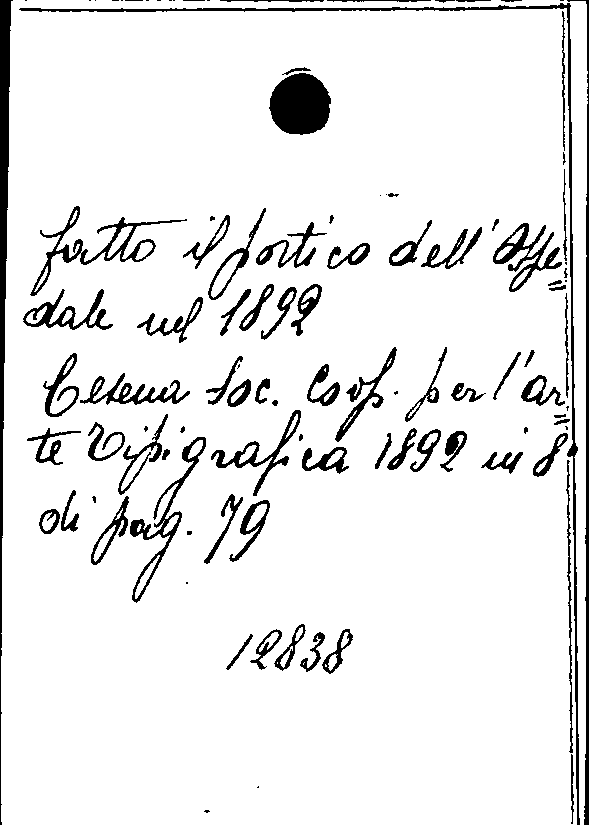 sotto il portico dell'Ospe=
dale nel 1892
Cesena Soc. Coop. per l'ar=
te Tipigrafica 1892 in 8°
di pag. 79
12838